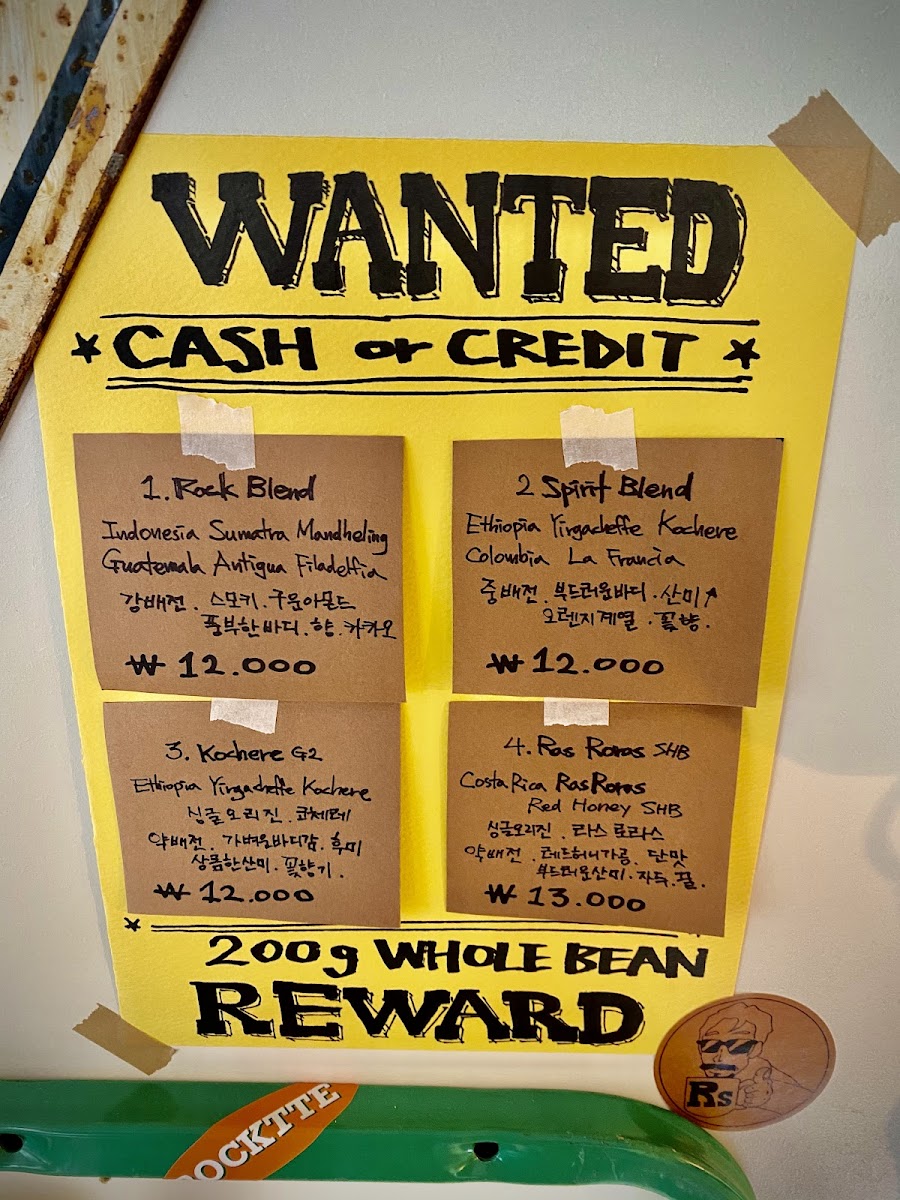 WANTED
CASH or CREDIT
1. Rock Blend
Indonesia Sumatra Mandheling
Guatemala Antigua Filadelfia
강배전. 스모키. 구운아몬드
풍부한바디. 향. 카카오
₩ 12.000
2 Spirit Blend
Ethiopia Yirgacheffe Kochere
Colombia La Francia
중배전. 부드러운바디. 산미↑
오렌지계열. 꽃향.
₩ 12.000
3. Kochere G2
Ethiopia Yirgacheffe Kochere
싱글오리진. 코체레
약배전. 가벼운바디감. 후미
상품한산미. 꽃향기.
₩ 12.000
4. Ras Roras SHB
Costa Rica Ras Roras
Red Honey SHB
싱글오리진. 라스 로라스
약배전. 레드허니가공. 단맛
부드러운산미. 자두. 꿀.
₩ 13.000
200g WHOLE BEAN
REWARD
Rs
OCKTTE